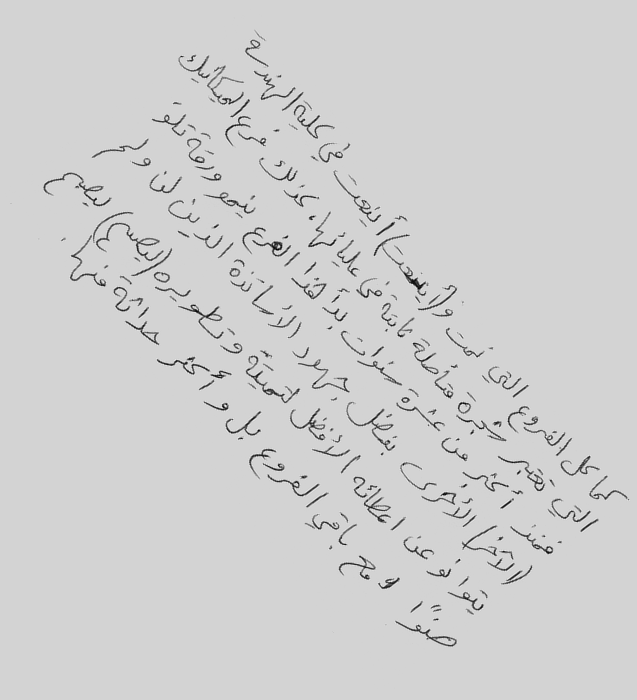 كما كل الفروع التي نمت و(أينعت) أينعت في كلية الهندسة
التي تعتبر شجرة متأصلة ثابتة في عليائها، كذلك فرع الميكانيك
فمنذ أكثر من عشرة سنوات بدأ هذا الفرع ينمو ورقة تلو
(الآخر) الأخرى بفضل جهود الأساتذة الذين لن ولم
يتوانو عن اعطائه الأفضل لتنميته وتطويره (ليصبح) ليصبح
صنوًا مع باقي الفروع بل وأكثر حداثة منها.